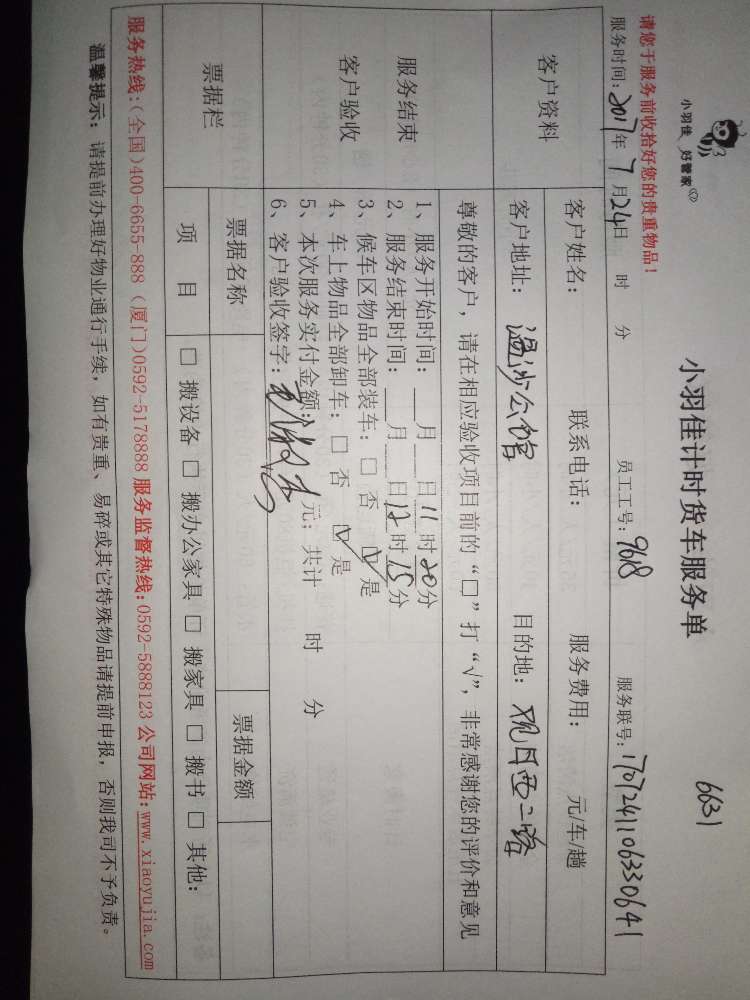 小羽佳 好管家
小羽佳计时货车服务单
6631
请您于服务前收拾好您的贵重物品！
服务时间：2017年 7月24日 时 分 员工工号：9618 服务联号：170724110633064 1
客户资料
客户姓名： 联系电话： 服务费用： 元/车/趟
客户地址： 温沙公馆 目的地： 观日西二路
服务结束
客户验收
尊敬的客户，请在相应验收项目前的“□”打“√”，非常感谢您的评价和意见
1、服务开始时间：___月___日11时20分
2、服务结束时间：___月___日12时15分
3、候车区物品全部装车：□ 否 ☑ 是
4、车上物品全部卸车：□ 否 ☑ 是
5、本次服务实付金额： 元；共计 时 分
6、客户验收签字：
票据栏
票据名称 票据金额
项 目 □ 搬设备 □ 搬办公家具 □ 搬家具 □ 搬书 □ 其他：
服务热线：（全国）400-6655-888（厦门）0592-5178888 服务监督热线：0592-5888123 公司网站：www.xiaoyujia.com
温馨提示：请提前办理好物业通行手续，如有贵重、易碎或其它特殊物品请提前申报，否则我司不予负责。